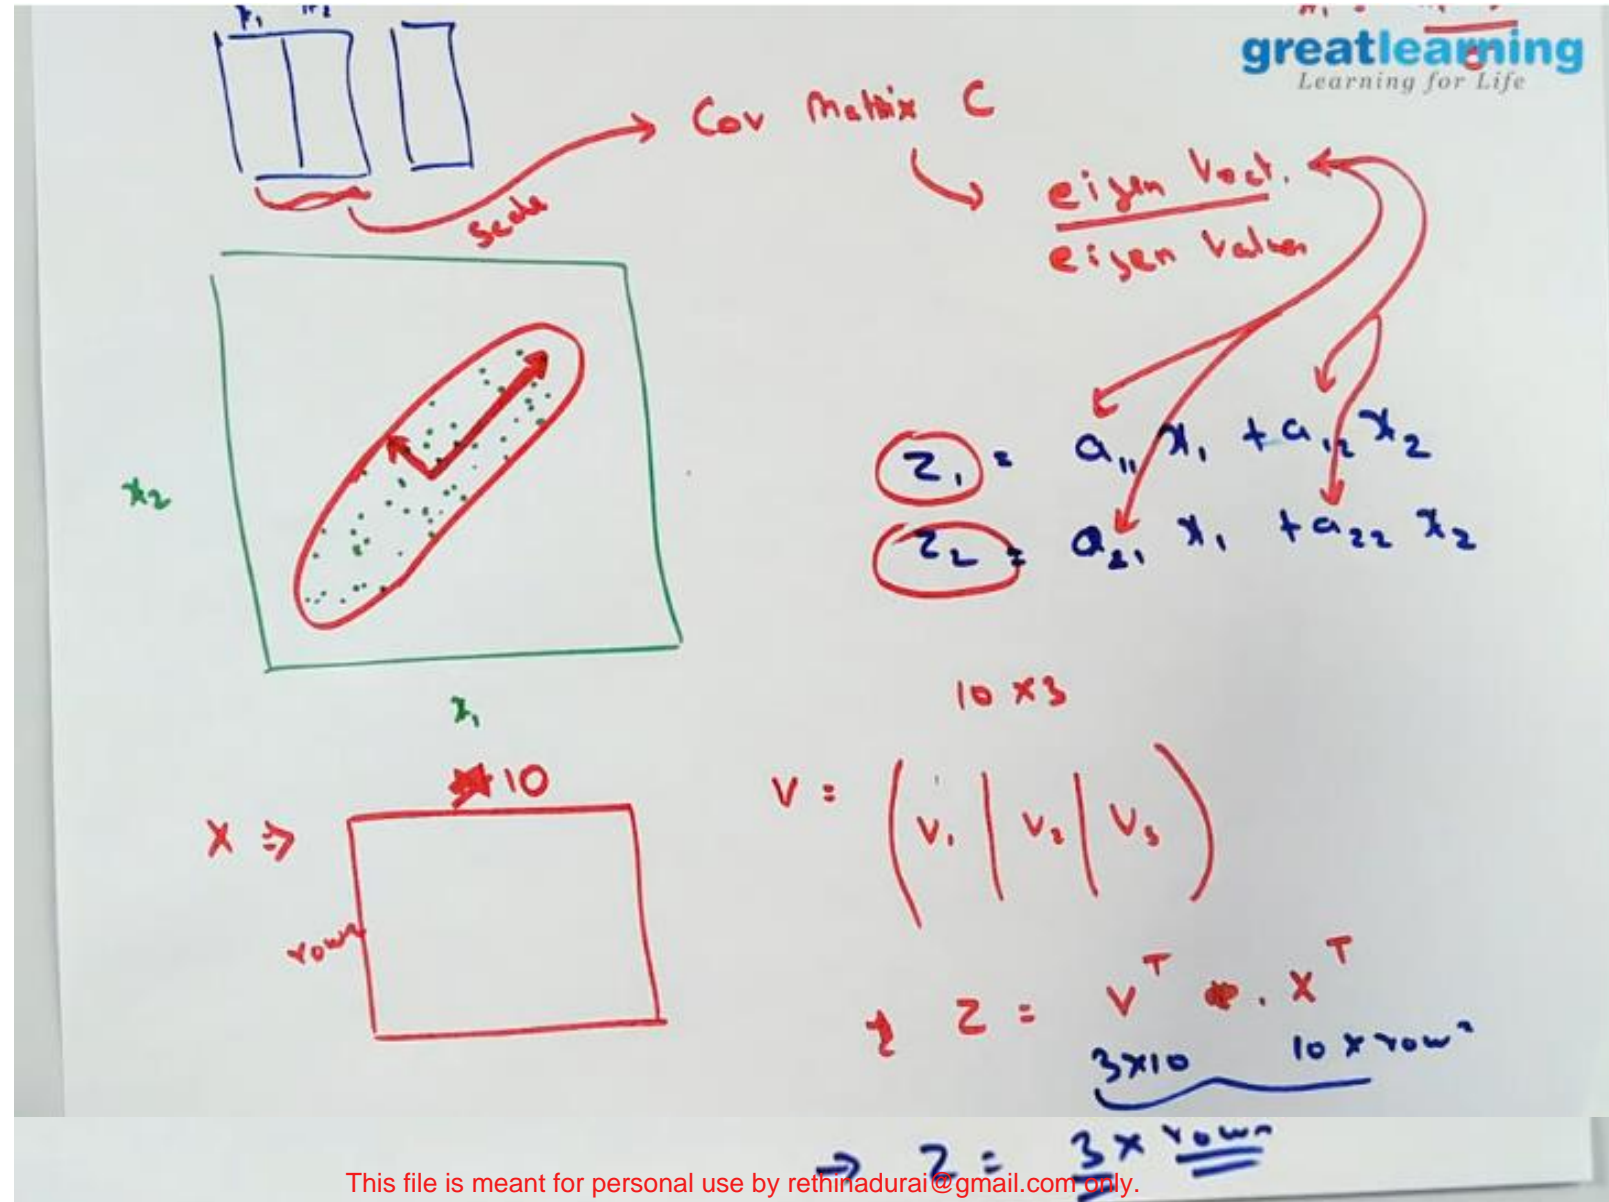 x₁ x₂
greatlearning
Learning for Life
Cov Matrix C
scale
eigen Vect.
eigen Values
x₂
x₁
z₁ = a₁₁ x₁ + a₁₂ x₂
z₂ = a₂₁ x₁ + a₂₂ x₂
10 × 3
10
X ⇒
rows
V = ( V₁ | V₂ | V₃ )
Z = Vᵀ . Xᵀ
3×10 10 × rows
→ Z = 3 × rows
This file is meant for personal use by rethinadurai@gmail.com only.